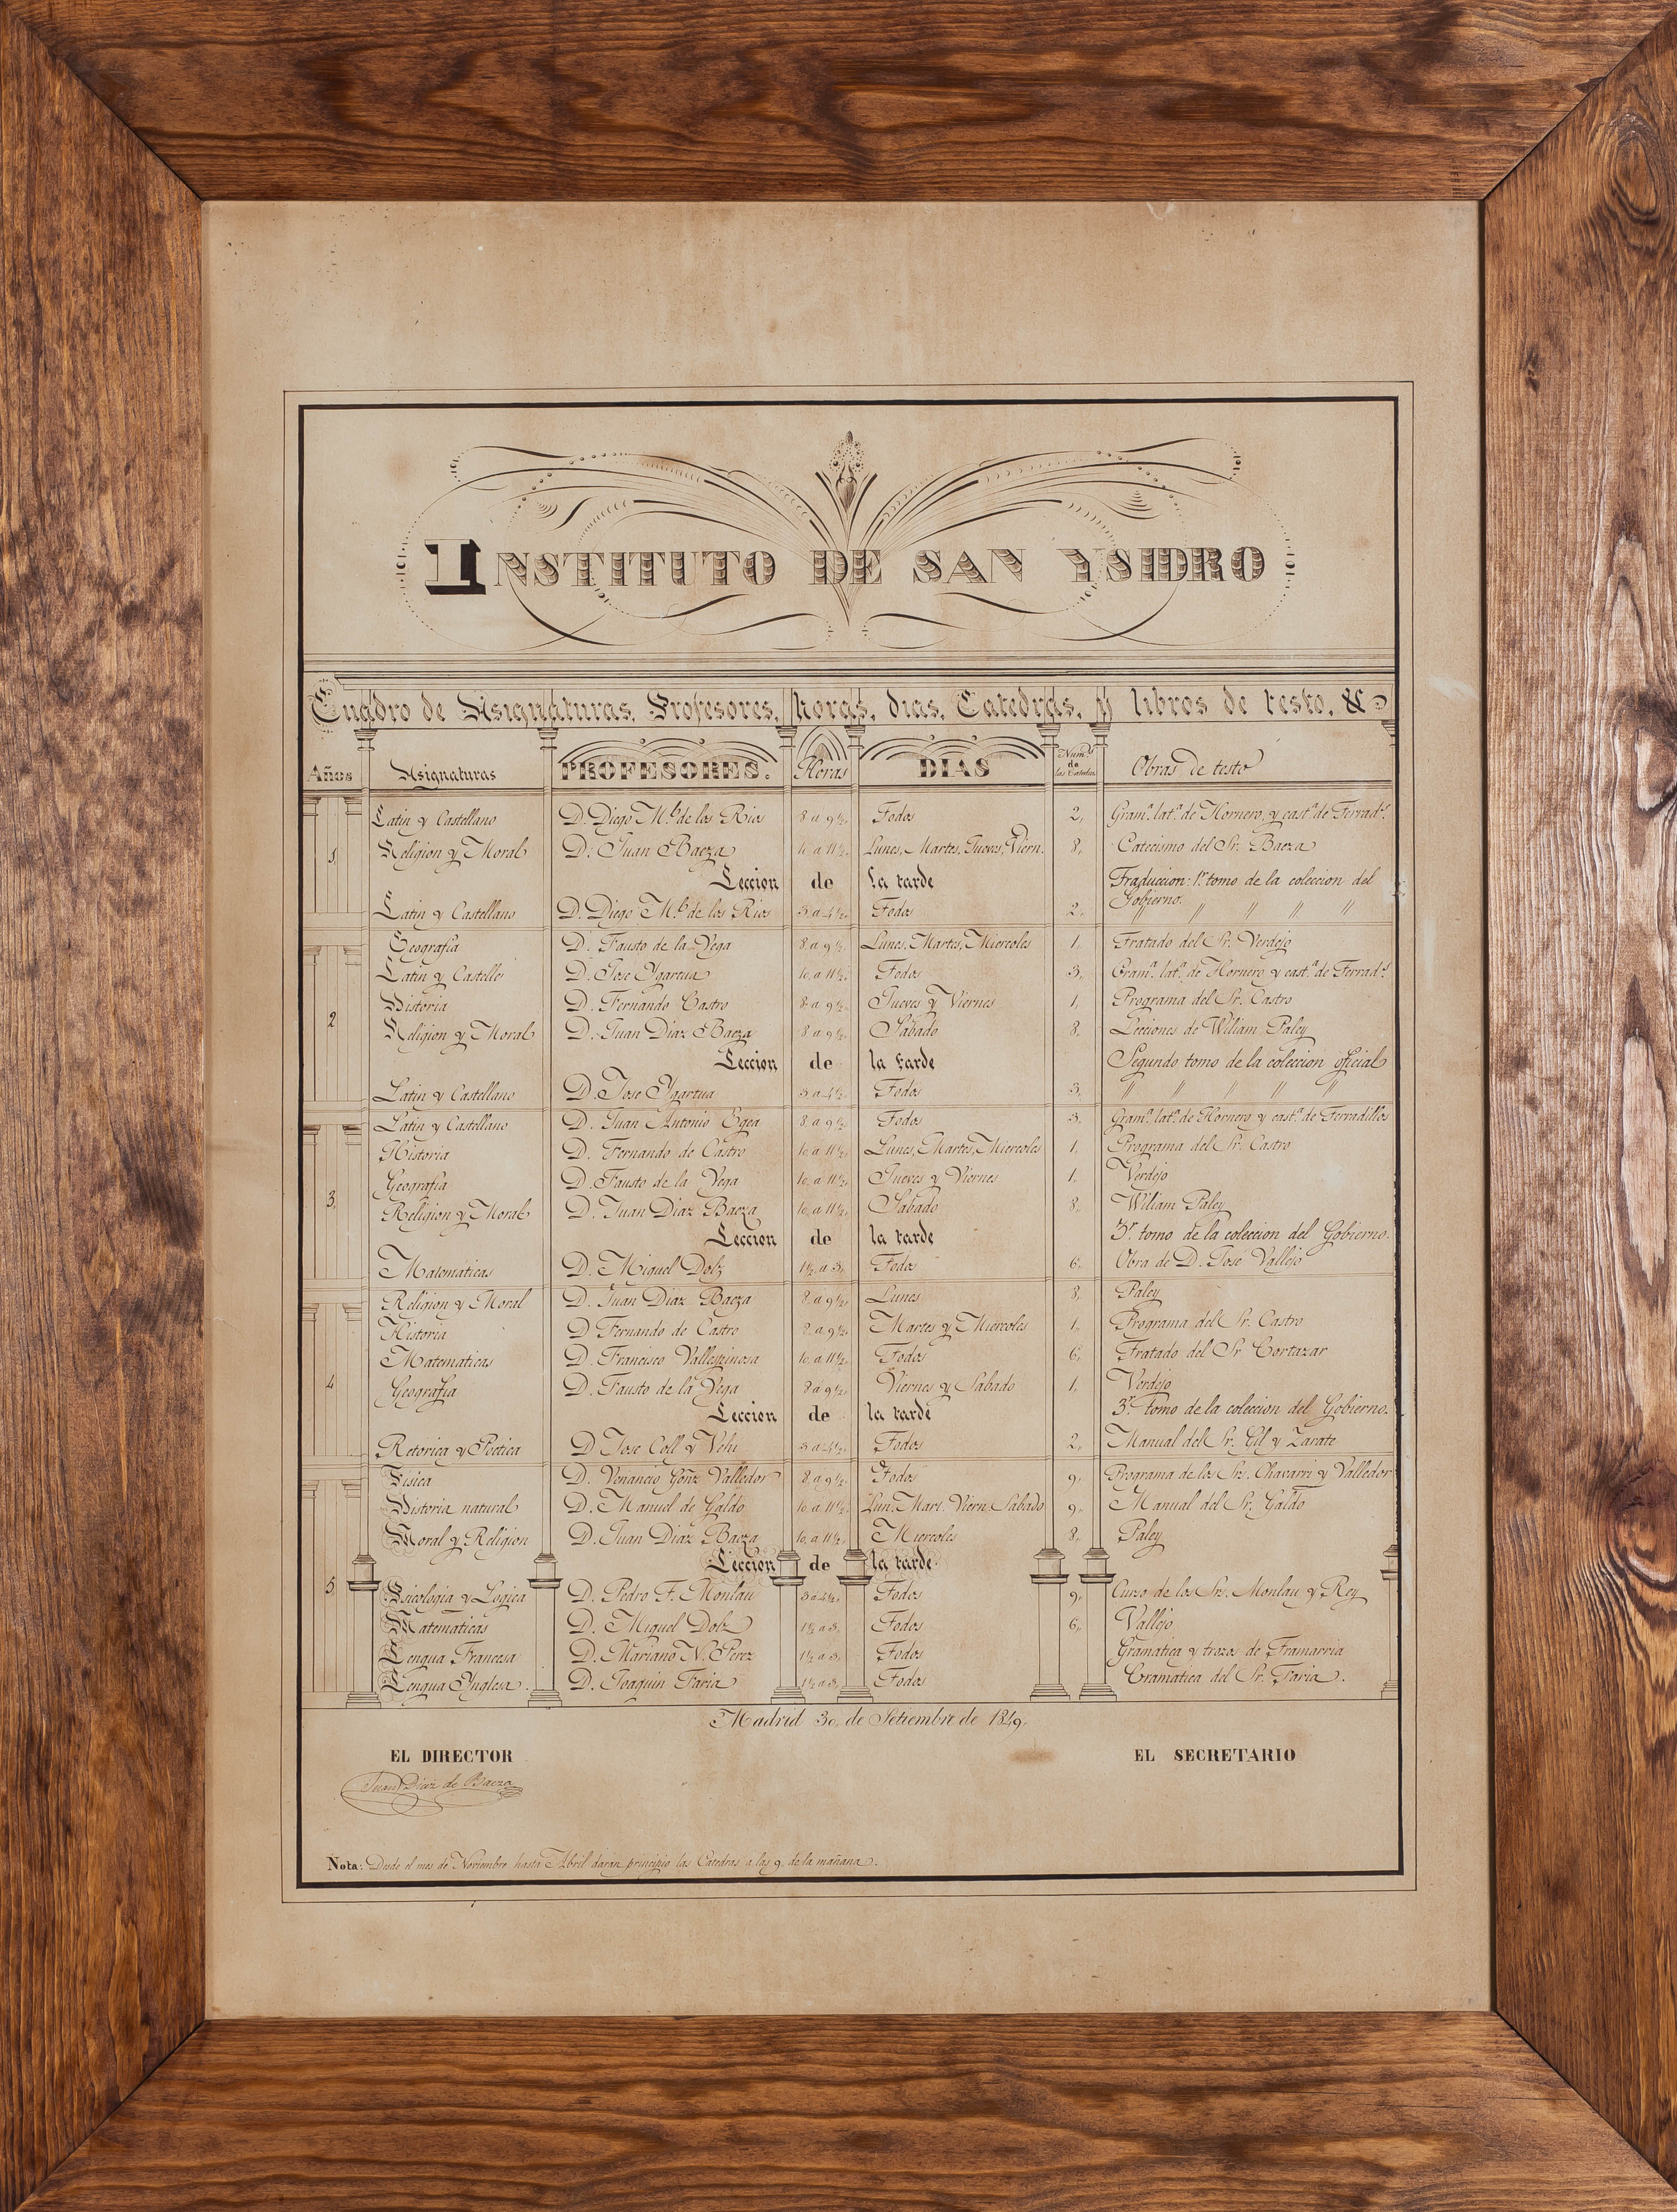 INSTITUTO DE SAN YSIDRO
Cuadro de Asignaturas, Profesores, horas, dias, Catedras, y libros de testo, &
Años Asignaturas PROFESORES. Horas DIAS Numº de las Catedras Obras de testo
1, Latin y Castellano D. Diego M.ª de los Rios 8 a 9½, Todos 2,, Gramª. latª. de Hornero, y castª. de Terradˢ.
Religion y Moral D. Juan Baeza 10 a 11½, Lunes, Martes, Jueves, Viern. 8,, Catecismo del Sr. Baeza
Leccion de la tarde Traduccion: 1ʳ tomo de la coleccion del
Gobierno.
Latin y Castellano D. Diego M.ª de los Rios 3 a 4½, Todos 2,, " " " " "
2 Geografia D. Fausto de la Vega 8 a 9½, Lunes, Martes, Miercoles 1,, Tratado del Sr. Verdejo
Latin y Castellº D. Jose Ygartua 10, a 11½, Todos 3,, Gramª. latª. de Hornero y castª. de Terradˢ.
Historia D. Fernando Castro 8 a 9½, Jueves y Viernes 1,, Programa del Sr. Castro
Religion y Moral D. Juan Diaz Baeza 8 a 9½, Sabado 8,, Lecciones de Wiliam Paley
Leccion de la tarde Segundo tomo de la coleccion oficial
Latin y Castellano D. Jose Ygartua 3 a 4½, Todos 3,, " " " " "
3, Latin y Castellano D. Juan Antonio Egea 8 a 9½, Todos 3,, Gramª. latª. de Hornero y castª. de Terradillos
Historia D. Fernando de Castro 10 a 11½, Lunes, Martes, Miercoles 1,, Programa del Sr. Castro
Geografia D. Fausto de la Vega 10, a 11½, Jueves y Viernes 1,, Verdejo
Religion y Moral D. Juan Diaz Baeza 10, a 11½, Sabado 8,, Wiliam Paley
Leccion de la tarde 3ʳ. tomo de la coleccion del Gobierno.
Matematicas D. Miguel Dolz 1½, a 3, Todos 6,, Obra de D. Jose Vallejo
4 Religion y Moral D. Juan Diaz Baeza 8 a 9½, Lunes 8,, Paley
Historia D. Fernando de Castro 8 a 9½, Martes y Miercoles 1,, Programa del Sr. Castro
Matematicas D. Francisco Vallespinosa 10, a 11½, Todos 6,, Tratado del Sr Cortazar
Geografia D. Fausto de la Vega 8 a 9½, Viernes y Sabado 1,, Verdejo
Leccion de la tarde 3ʳ. tomo de la coleccion del Gobierno.
Retorica y Poetica D. Jose Coll y Vehi 3 a 4½, Todos 2,, Manual del Sr. Gil y Zarate
5, Fisica D. Venancio Goñz Valledor 8, a 9½, Todos 9, Programa de los Srs. Chavarri y Valledor
Historia natural D. Manuel de Galdo 10 a 11½, Lun. Mart. Viern. Sabado 9,, Manual del Sr. Galdo
Moral y Religion D. Juan Diaz Baeza 10, a 11½, Miercoles 8,, Paley
Leccion de la tarde
Psicologia y Logica D. Pedro F. Monlau 3 a 4½, Todos 9,, Curso de los Srs. Monlau y Rey
Matematicas D. Miguel Dolz 1½ a 3, Todos 6,, Vallejo
Lengua Francesa D. Mariano N. Perez 1½ a 3, Todos Gramatica y trozos de Tramarria
Lengua Ynglesa. D. Joaquin Faria 1½ a 3, Todos Gramatica del Sr. Faria.
Madrid 30, de Setiembre de 1849,
EL DIRECTOR EL SECRETARIO
Juan Diaz de Baeza
Nota: Desde el mes de Noviembre hasta Abril daran principio las Catedras a las 9, de la mañana.